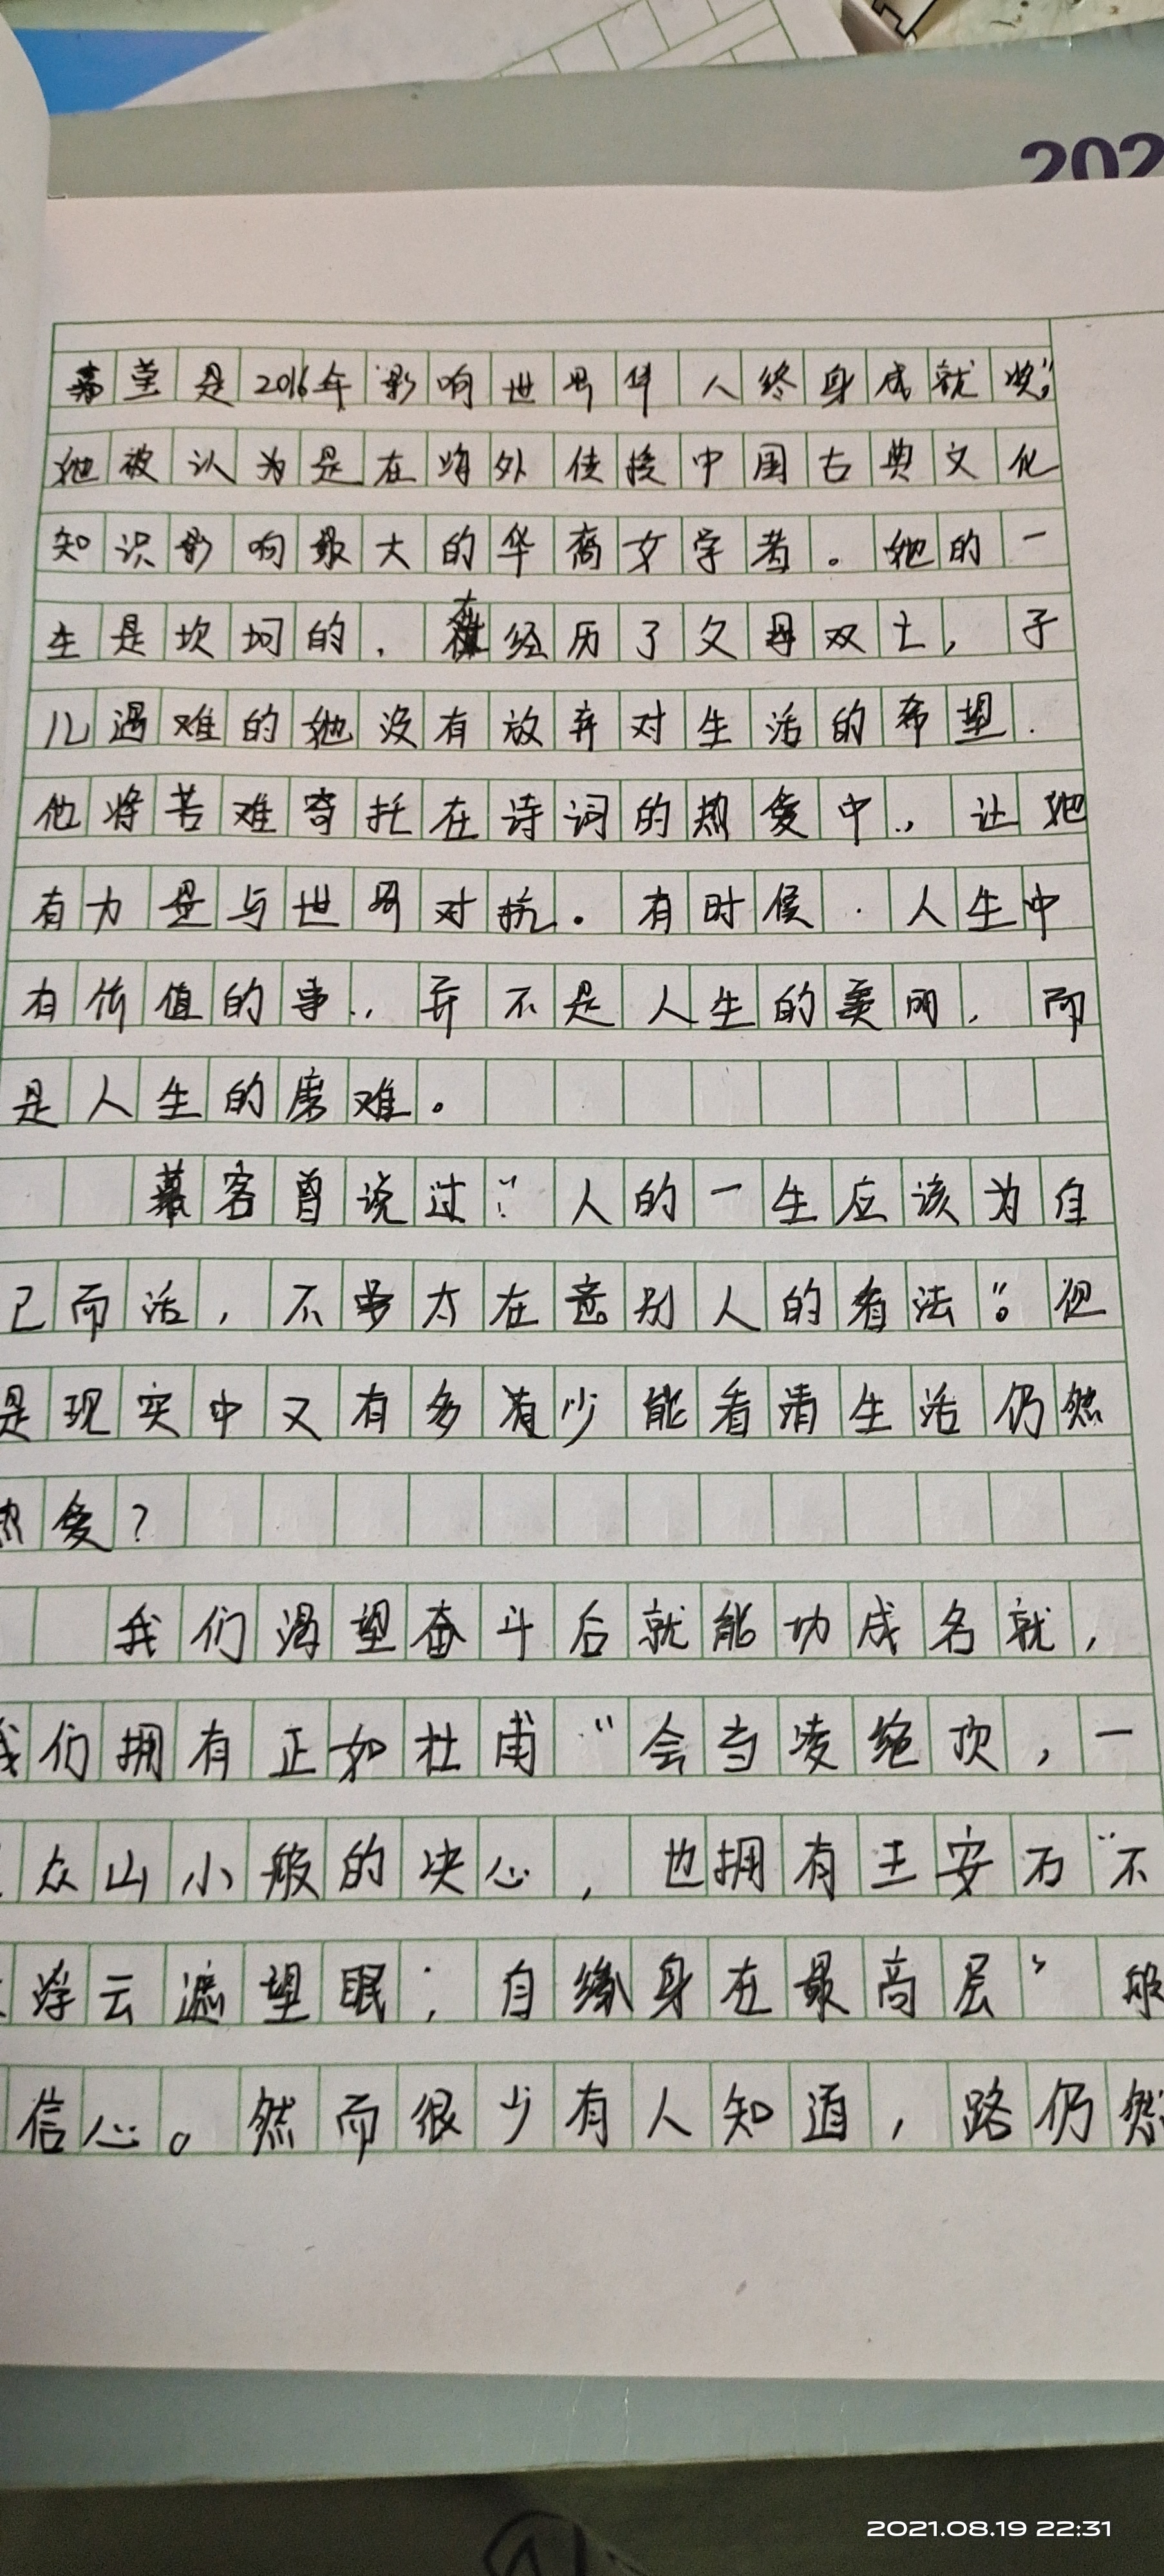 202
嘉莹是2016年"影响世界华人终身成就奖",
她被认为是在海外传授中国古典文化
知识影响最大的华裔女学者。她的一
生是坎坷的,在经历了父母双亡,子
儿遇难的她没有放弃对生活的希望.
他将苦难寄托在诗词的热爱中,让她
有力量与世界对抗。有时候.人生中
有价值的事,并不是人生的美丽,而
是人生的磨难。
慕客曾说过:"人的一生应该为自
己而活,不要太在意别人的看法"。但
是现实中又有多有少能看清生活仍然
热爱?
我们渴望奋斗后就能功成名就,
我们拥有正如杜甫"会当凌绝顶,一
众山小般的决心,也拥有王安石"不
浮云遮望眼;自缘身在最高层"般
信心。然而很少有人知道,路仍然
2021.08.19 22:31